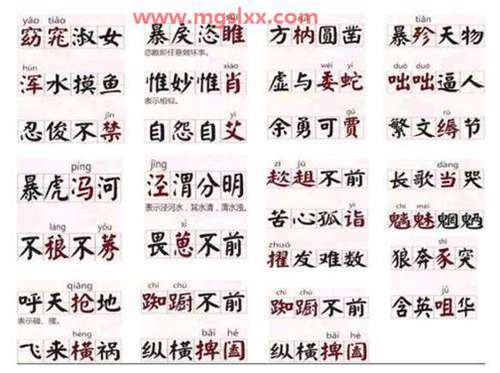 www.mgdlxx.com
yǎo tiǎo
窈窕淑女
hún
浑水摸鱼
jīn
忍俊不禁
píng
暴虎冯河
láng yǒu
不稂不莠
qiāng
呼天抢地
表示碰、撞。
hèng
飞来横祸
暴戾恣睢
恣睢即任意做坏事。
xiào
惟妙惟肖
表示相似。
yì
自怨自艾
jīng
泾渭分明
表示泾河水,其水清,渭水浊。
xǐ
畏葸不前
chí chú
踟蹰不前
bǎi hé
纵横捭阖
方枘圆凿
wēi yí
虚与委蛇
gǔ
余勇可贾
zī jū
趑趄不前
yì
苦心孤诣
zhuó
擢发难数
chí chú
踟蹰不前
bǎi hé
纵横捭阖
tiǎn
暴殄天物
duō duō
咄咄逼人
rù
繁文缛节
dàng
长歌当哭
魑魅魍魉
shǐ
狼奔豕突
jǔ
含英咀华